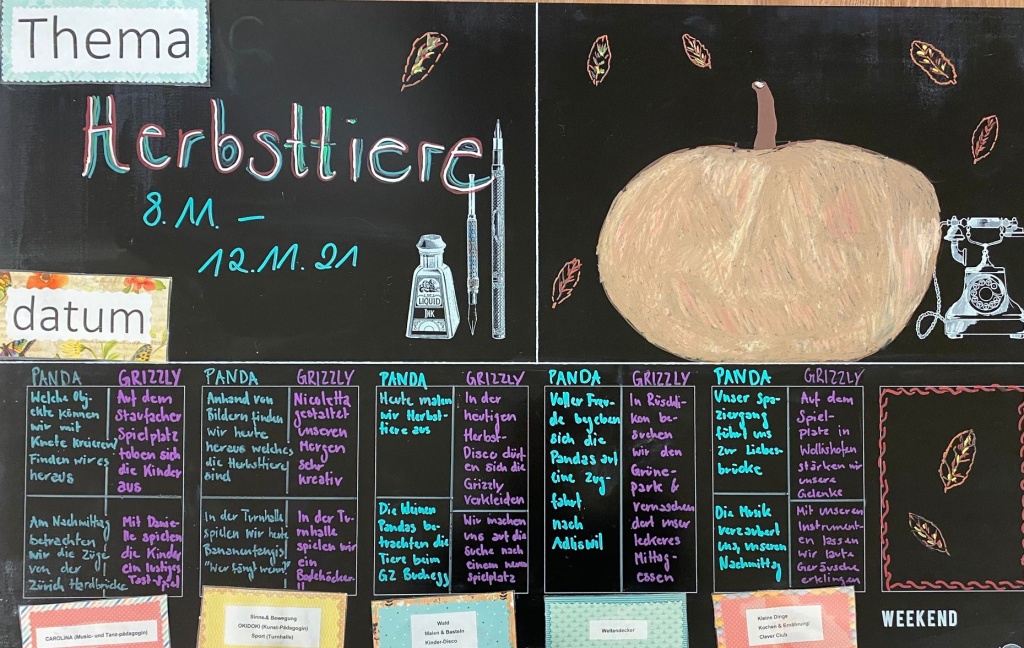 Thema
Herbsttiere
8.11. –
12.11.21
LIQUID
INK
datum
PANDA
Welche Obj-
ekte können
wir mit
Knete kreieren?
Finden wir es
heraus
Am Nachmittag
betrachten
wir die Züge
von der
Zürich Hardbrücke
GRIZZLY
Auf dem
Staufacher
Spielplatz
toben sich
die Kinder
aus
Mit Danie-
lle spielen
die Kinder
ein lustiges
Tast-Spiel
PANDA
Anhand von
Bildern finden
wir heute
heraus welches
die Herbsttiere
sind
In der Turnhalle
spielen wir heute
Bananenfangis!
"Wer fängt wenn?"
GRIZZLY
Nicoletta
gestaltet
unseren
Morgen
sehr
kreativ
In der Tu-
rnhalle
spielen wir
ein
PANDA
Heute malen
wir Herbst-
tiere aus
Die kleinen
Pandas be-
trachten die
Tiere beim
GZ Buchegg
GRIZZLY
In der
heutigen
Herbst-
Disco dürf-
en sich die
Grizzly
verkleiden
Wir machen
uns auf die
suche nach
einem neuen
spielplatz
PANDA
Voller Freu-
de begeben
sich die
Pandas auf
eine Zug-
fahrt
nach
Adliswil
GRIZZLY
In Rüschli-
kon be-
suchen
wir den
Grüne-
park &
vernaschen
dort unser
leckeres
Mittag-
essen
PANDA
Unser Spa-
ziergang
führt uns
zur Liebes-
brücke
Die Musik
verzaubert
uns, unseren
Nachmittag
GRIZZLY
Auf dem
Spiel-
platz in
Wollishofen
stärken wir
unsere
Gelenke
Mit unseren
Instrument-
en lassen
wir laute
Geräusche
erklingen
CAROLINA (Music- und Tanz-pädagogin)
Sinne & Bewegung
OKIDOKI (Kunst-Pädagogin)
Sport (Turnhalle)
Wald
Malen & Basteln
Kinder-Disco
Weltendecker
Kleine Dinge
Kochen & Ernährung
Clever Club
WEEKEND